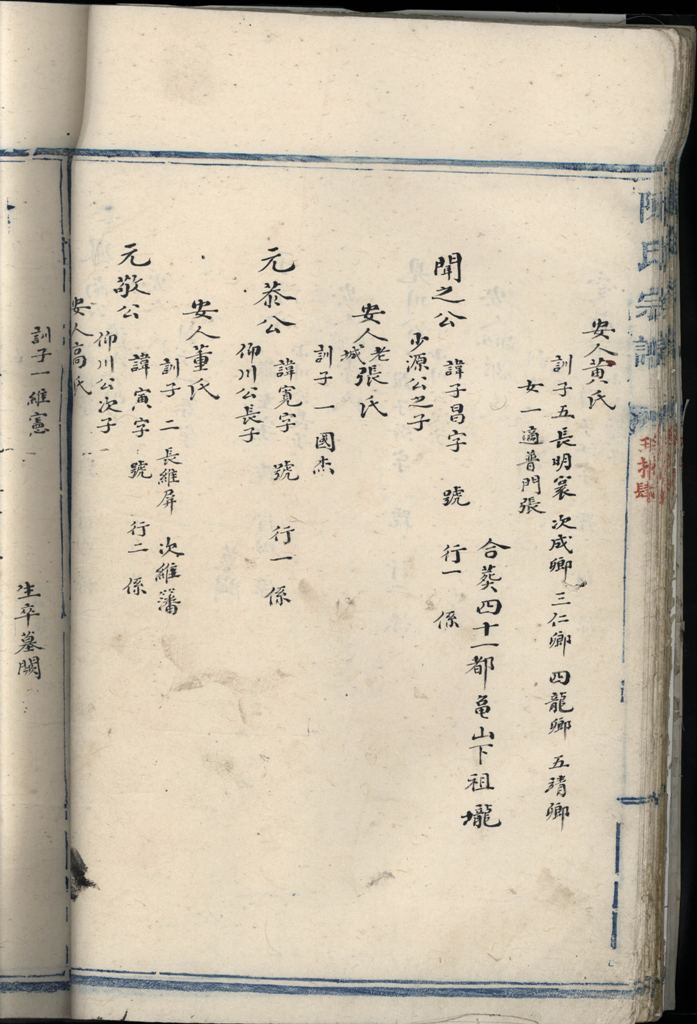 陳氏宗譜
安人黃氏
訓子五長明寰 次成卿 三仁卿 四龍卿 五靖卿
女一適普門張
合葵四十一都龜山下祖壠
聞之公 諱子昌字 號 行一 係
少源公之子
安人老城張氏
訓子一國杰
元恭公 諱寬字 號 行一 係
仰川公長子
安人董氏
訓子 二 長維屏 次維藩
元敬公 諱寅字 號 行二 係
仰川公次子
安人高氏
訓子一維憲
生卒墓闕